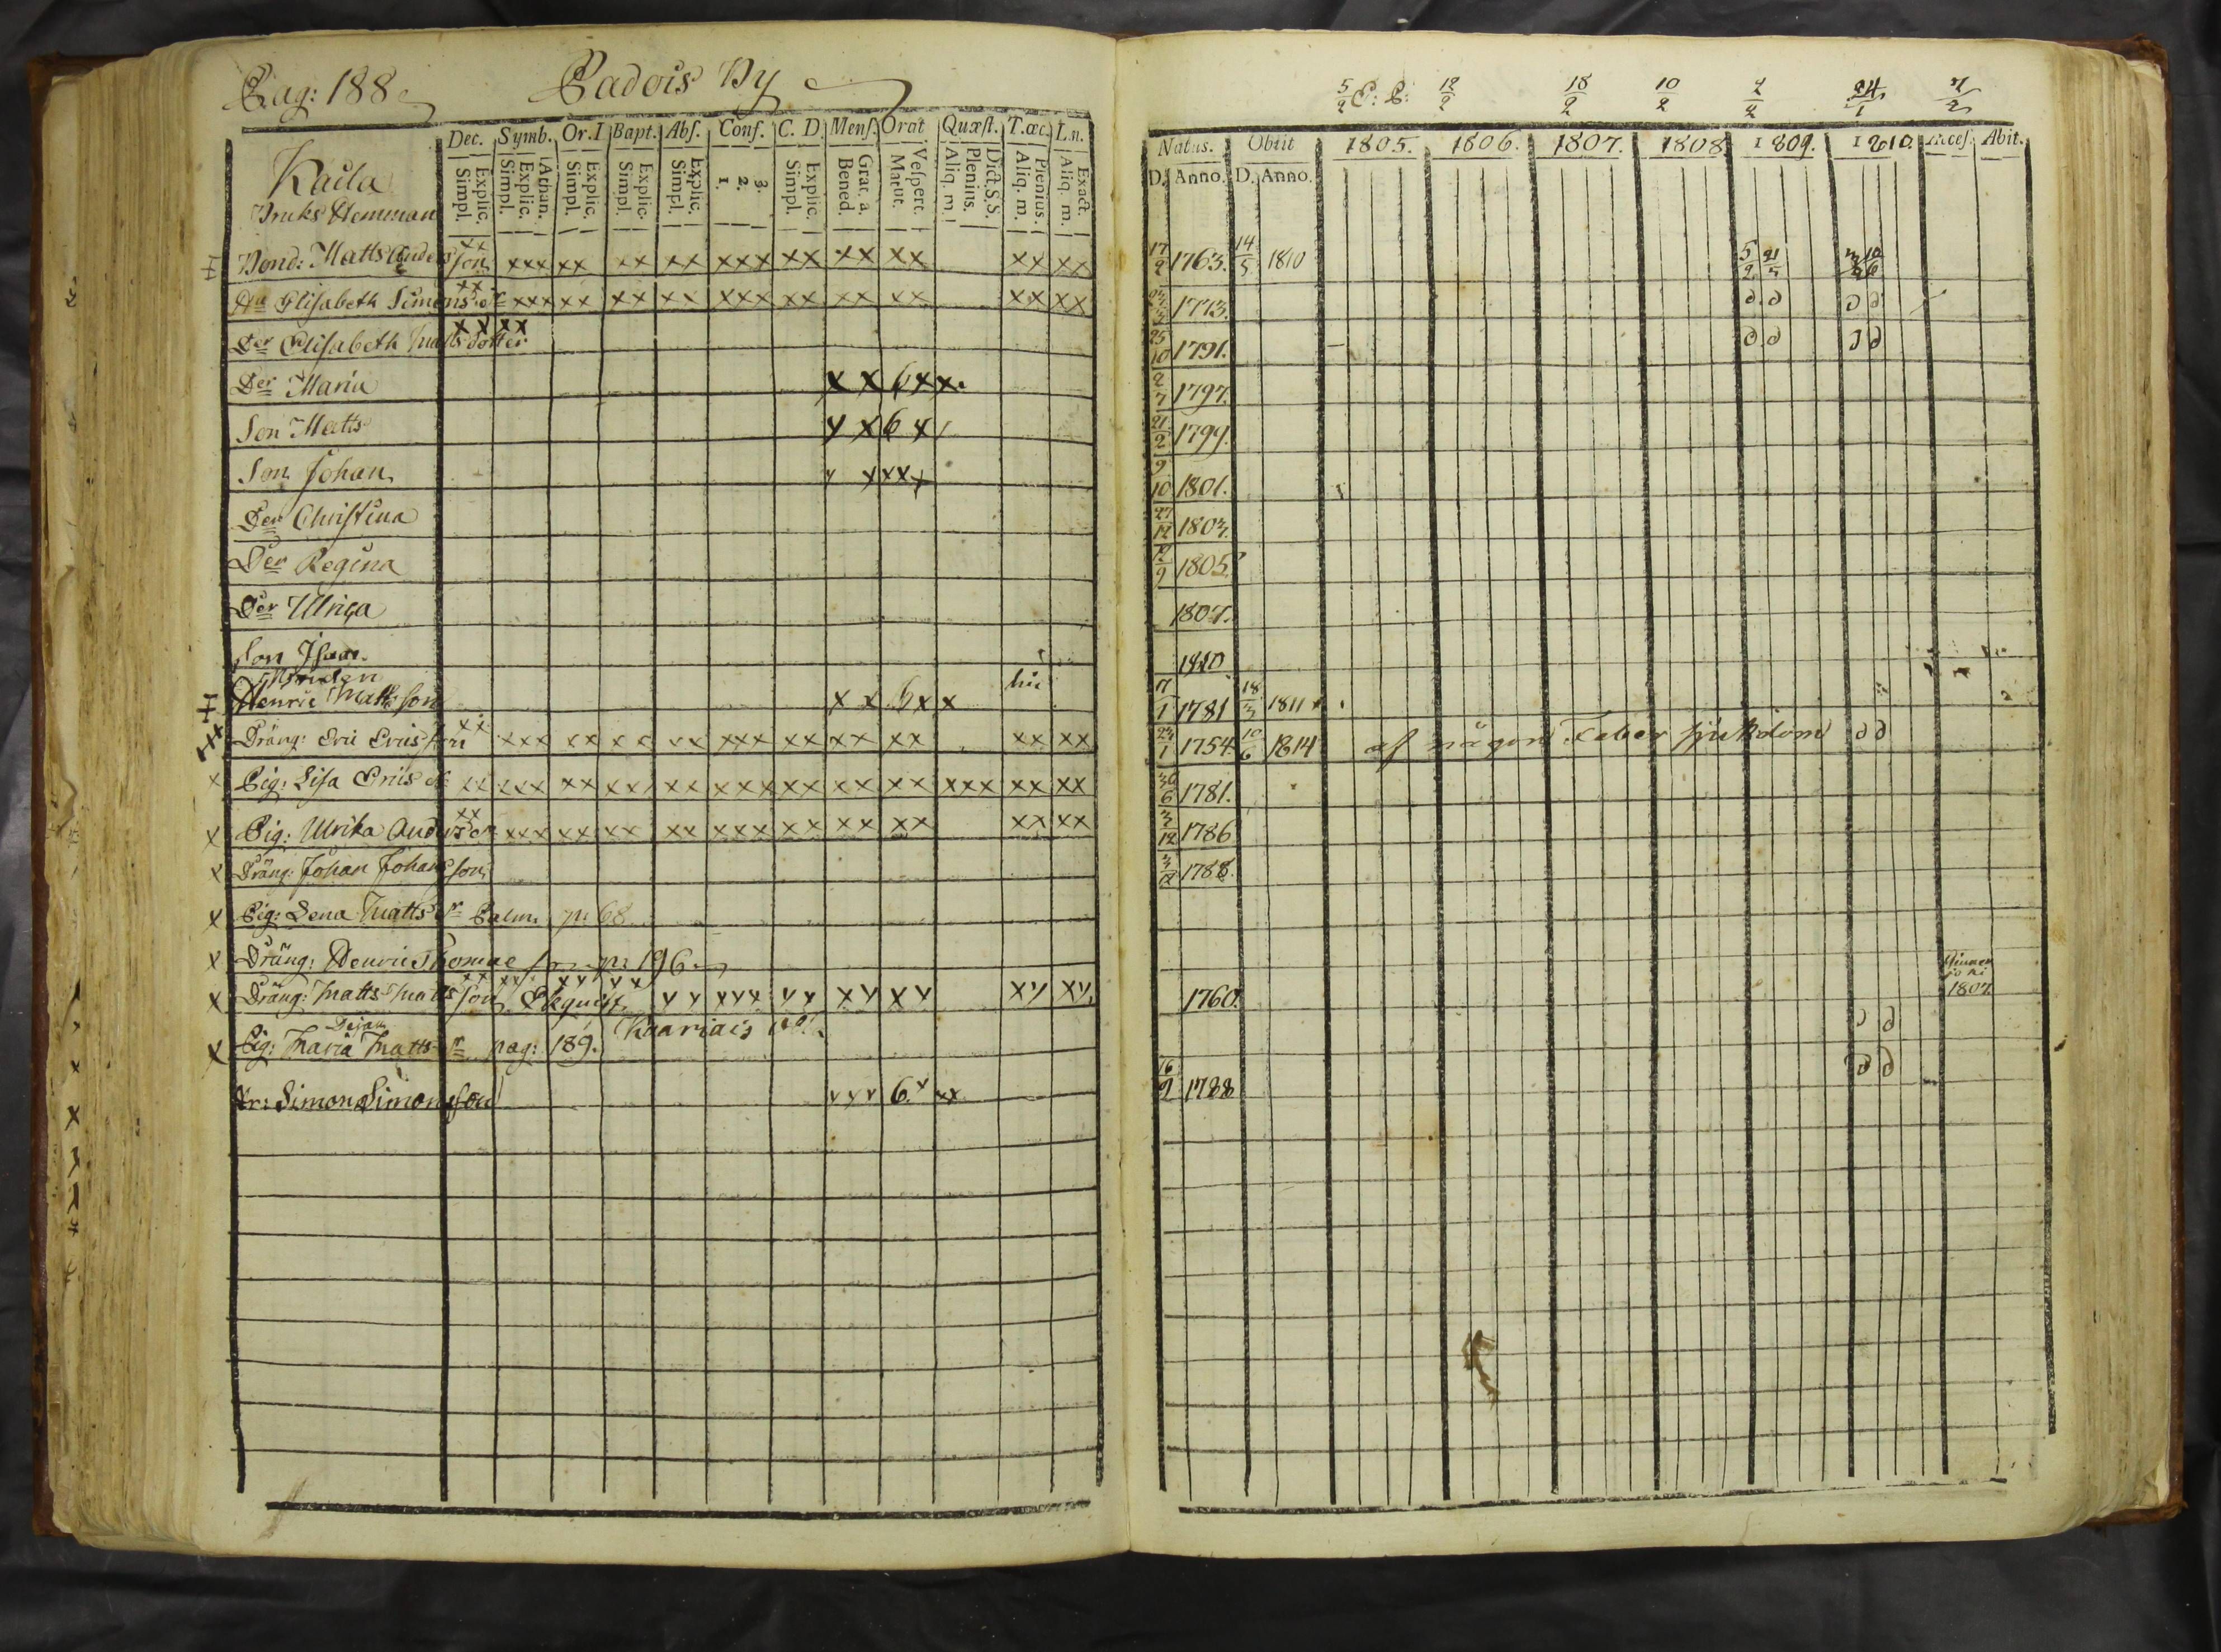 Pag: 188 Padois By
Dec. Symb. Or.I Bapt. Abſ. Conf. C. D. Menſ. Orat Quæſt. T.œc. L.n.
Explic. Simpl. Athan. Explic. Simpl. Explic. Simpl. Explic. Simpl. Explic. Simpl. 3. 2. 1. Explic. Simpl. Grat. a. Bened. Veſpert. Matut. Dict.S.S. Plenius. Aliq. m. Plenius. Aliq. m. Exact. Aliq. m.
Kaila
Bruks Hemman
Bond: Matts Anders son xx xxx xx xx xx xxx xx xx xx xx xx
Elisabeth Simons dr xx xxx xx xx xx xxx xx xx xx xx xx
Der Elisabeth Matts dotter xx xx
Der Maria x x 6 x x
Son Matts x x 6 x
Son Johan x x x x
Der Christina
Der Regina
Der Ulrica
Son Isaac
Henric Matts son x x 6 x x
Dräng: Eric Ericsson xx xxx xx xx xx xxx xx xx xx xx xx
Pig: Lisa Erics dr xx xxx xx xx xx xxx xx xx xx xxx xx xx
Pig: Ulrika Anders dr xx xxx xx xx xx xxx xx xx xx xx xx
Dräng: Johan Johans son
Pig: Lena Matts dr Palm. p: 68
Dräng: Henric Thomae p: 196
Dräng: Matts Matts son Ekquist xx xx xx xx xx xxx xx xx xx xx xx
Pig: Maria Matts dr pag: 189. Kaariais
Dr: Simon Simonsson x x x 6 x xx
5/2 E: P: 12/2 18/2 10/2 24/1
Natus. Obiit 1805. 1806. 1807. 1808 1809. 1810. Acceſ. Abit.
D. Anno. D. Anno.
17/2 1763. 14/5 1810
1773.
25/10 1791.
2/7 1797.
21/2 1799.
9/10 1801.
27/12 1803.
1805
1807.
1810
1781 18/3 1811
1754. 10/6 1814 af någon Feber sjukdom
30/6 1781.
3/12 1786
1788.
1760. 1807
16/9 1788